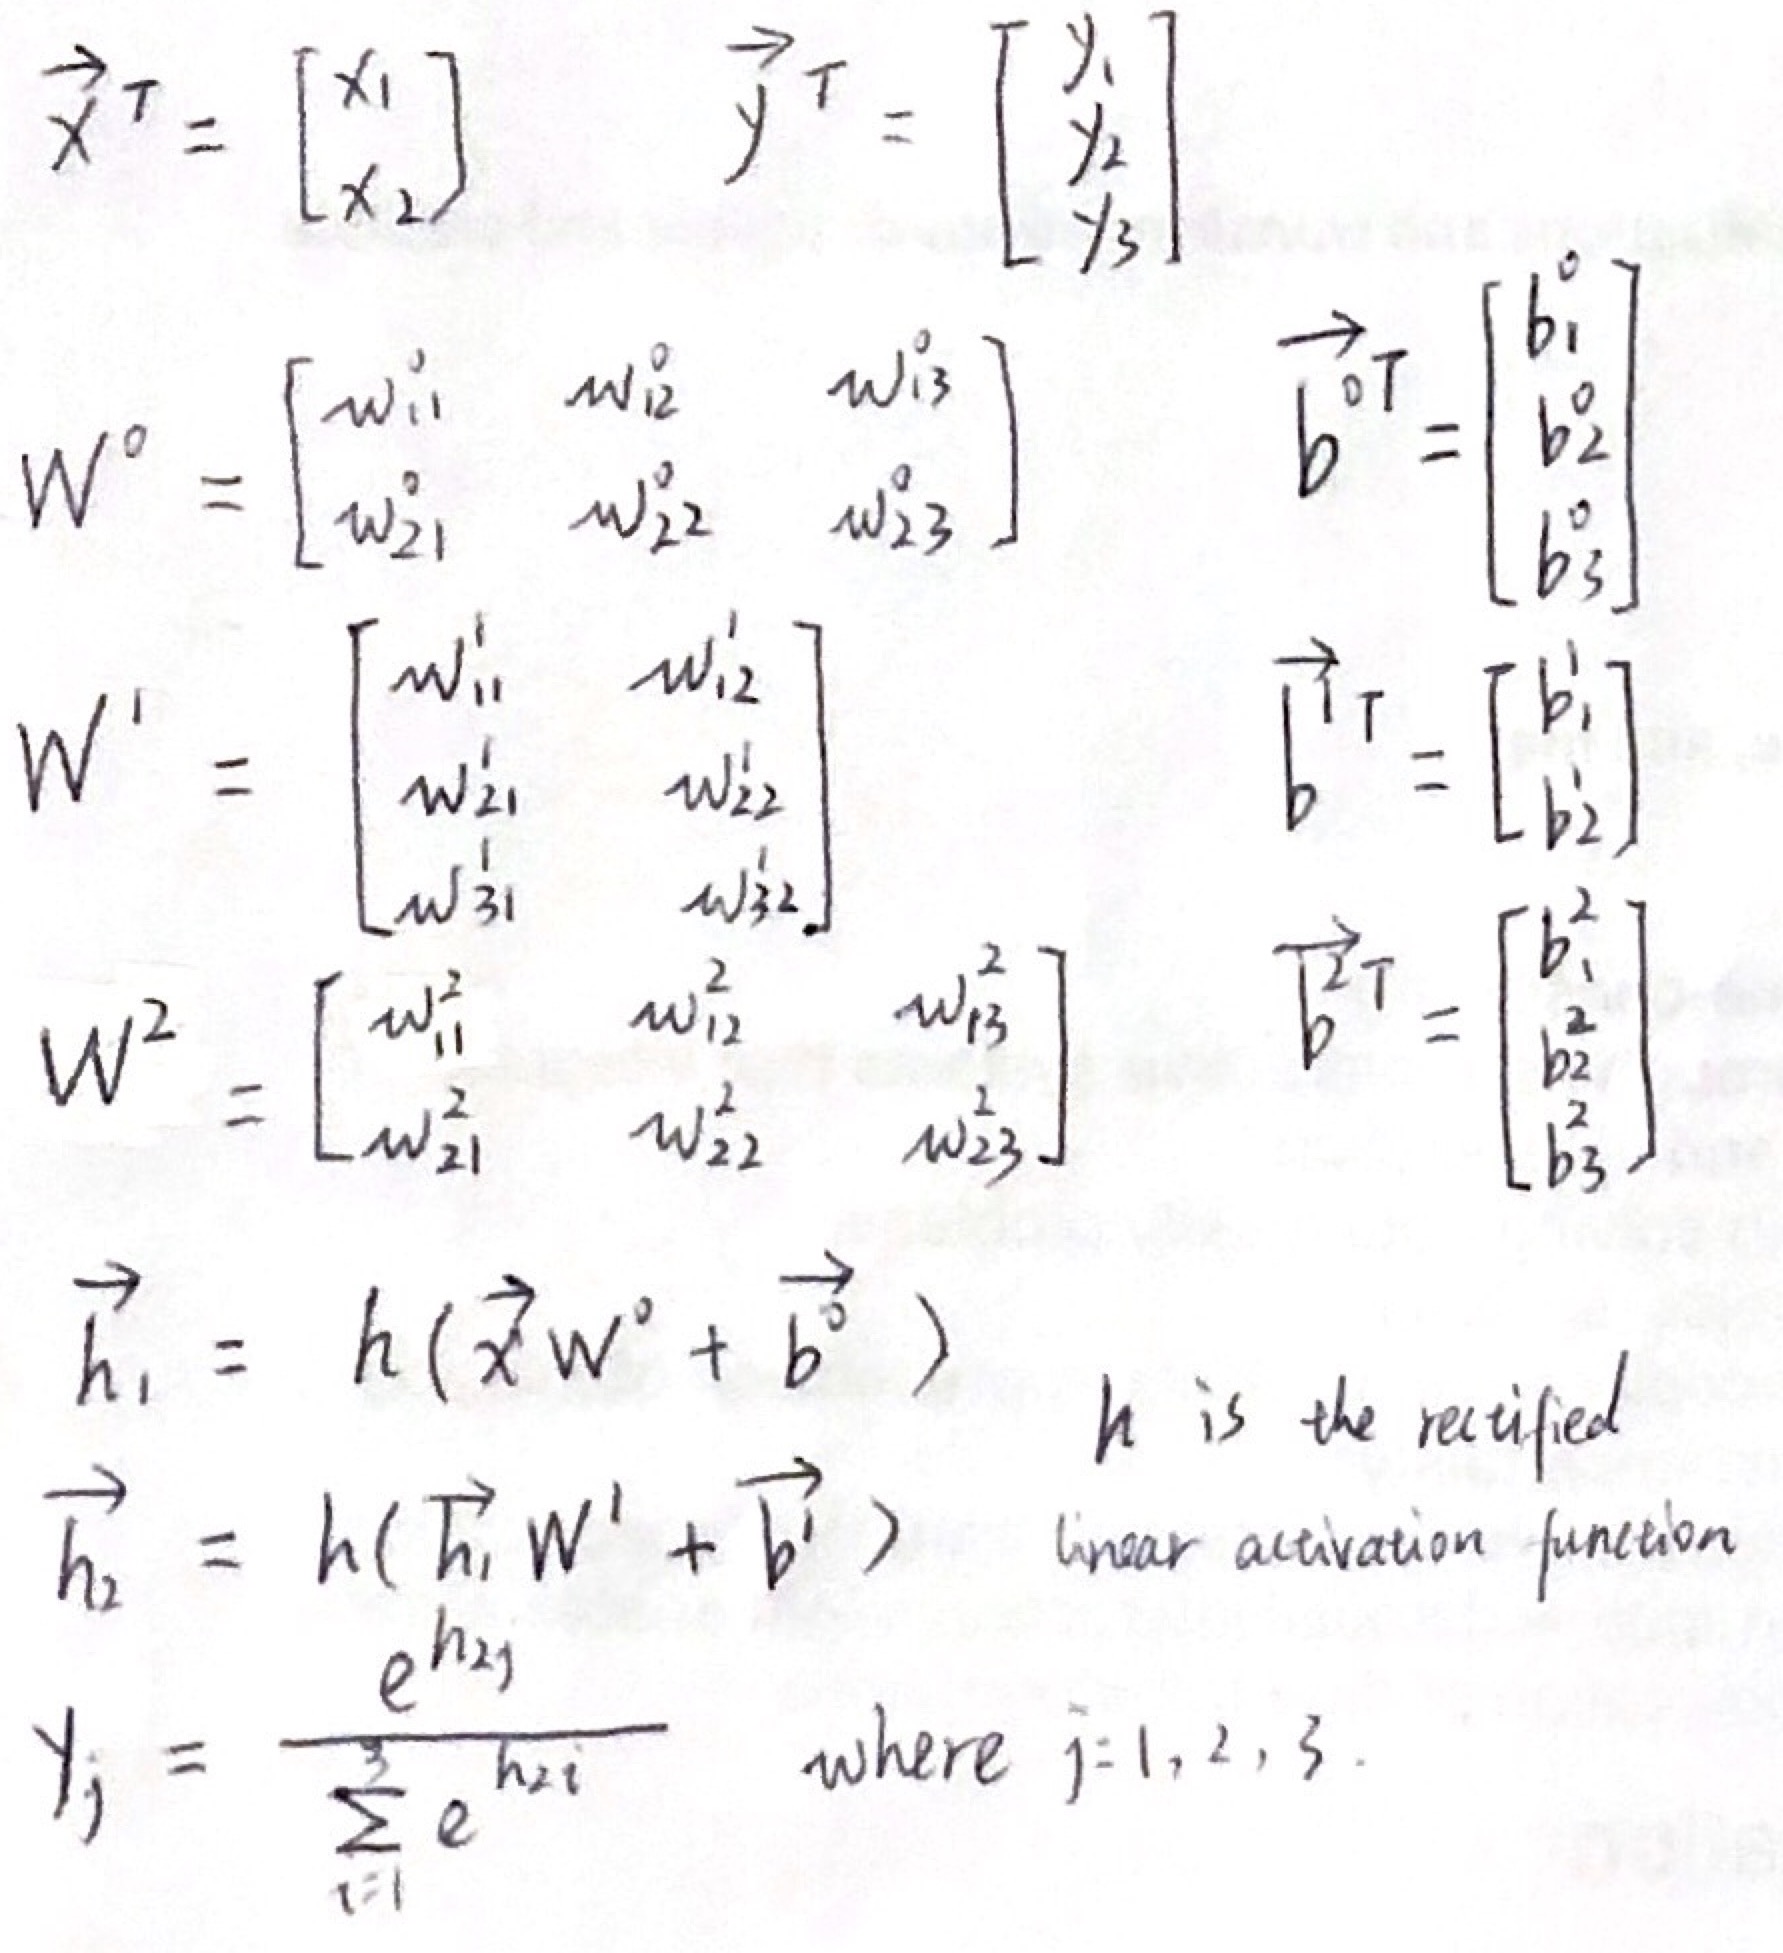 $\vec{x}^T = \begin{bmatrix} x_1 \\ x_2 \end{bmatrix} \quad \vec{y}^T = \begin{bmatrix} y_1 \\ y_2 \\ y_3 \end{bmatrix}$
$W^0 = \begin{bmatrix} w_{11}^0 & w_{12}^0 & w_{13}^0 \\ w_{21}^0 & w_{22}^0 & w_{23}^0 \end{bmatrix} \quad \vec{b^0}^T = \begin{bmatrix} b_1^0 \\ b_2^0 \\ b_3^0 \end{bmatrix}$
$W^1 = \begin{bmatrix} w_{11}^1 & w_{12}^1 \\ w_{21}^1 & w_{22}^1 \\ w_{31}^1 & w_{32}^1 \end{bmatrix} \quad \vec{b^1}^T = \begin{bmatrix} b_1^1 \\ b_2^1 \end{bmatrix}$
$W^2 = \begin{bmatrix} w_{11}^2 & w_{12}^2 & w_{13}^2 \\ w_{21}^2 & w_{22}^2 & w_{23}^2 \end{bmatrix} \quad \vec{b^2}^T = \begin{bmatrix} b_1^2 \\ b_2^2 \\ b_3^2 \end{bmatrix}$
$\vec{h_1} = h(\vec{x} W^0 + \vec{b^0})$
h is the rectified
$\vec{h_2} = h(\vec{h_1} W^1 + \vec{b^1})$
linear activation function
$y_j = \frac{e^{h_{2j}}}{\sum_{i=1}^{3} e^{h_{2i}}}$ where j=1, 2, 3.